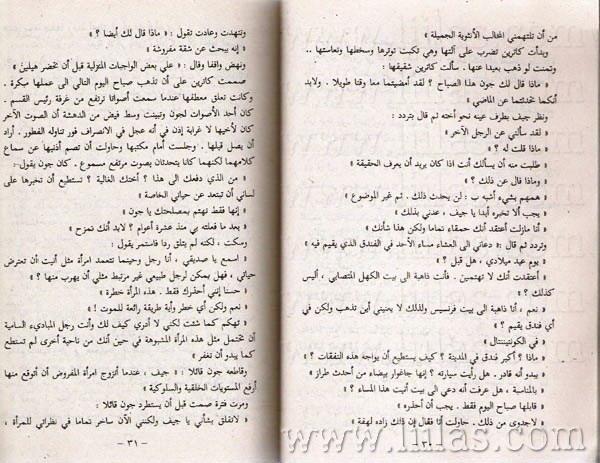 من أن تلتهمني المخالب الأنثوية الجميلة »
وبدأت كاترين تضرب على آلتها وهي تكبت توترها وسخطها وتعاستها ..
وتمنت لو ذهب بعيدا عنها . سألت كاترين شقيقها :
« ماذا قال لك جون هذا الصباح ؟ لقد أمضيتما معا وقتا طويلا . ولابد
أنكما تحدثتما عن الماضي »
ونظر جيف بطرف عينه نحو أخته ثم قال بتردد :
« لقد سألني عن الرجل الآخر »
« ماذا قلت له ؟ »
« طلبت منه أن يسألك أنت اذا كان يريد أن يعرف الحقيقة »
« وماذا قال عن ذلك ؟ »
« همهم بشيء أشبه ب : لن يحدث ذلك . ثم غير الموضوع »
« يجب ألا تخبره أبدا يا جيف ، عدني بذلك »
« أنا مازلت أعتقد أنك حمقاء تماما ولكن هذا شأنك »
وتردد ثم قال :« دعاني الى العشاء مساء الأحد في الفندق الذي يقيم فيه »
« يوم عيد ميلادي ، هل قبل ؟ »
« أعتقدت أنك لا تهتمين . فأنت ذاهبة الى بيت الكهل المتصابي ، أليس
كذلك ؟ »
« نعم ، أنا ذاهبة الى بيت فرنسيس ولذلك لا يعنيني أين تذهب ولكن في
أي فندق يقيم ؟ »
« في الكونتيننتال »
« ماذا ؟ أكبر فندق في المدينة ؟ كيف يستطيع أن يواجه هذه النفقات ؟ »
« يبدو أنه قادر . هل رأيت سيارته ؟ إنها جاغوار بيضاء من أحدث طراز »
« بالمناسبة ، هل عرفت أنه دعي الى بيت أنيت هذا المساء ؟ »
« قابلها صباح اليوم فقط . يجب أن أحذره »
« لاجدوى من ذلك . حاولت أنا فقال إن ذلك زاده لهفة »
وتنهدت وعادت تقول : « ماذا قال لك أيضا ؟ »
« إنه يبحث عن شقة مفروشة »
ونهض واقفا وقال : « علي بعض الواجبات المنزلية قبل أن تحضر هيلين »
صممت كاترين على أن تذهب صباح اليوم التالي الى عملها مبكرة .
وكانت تعلق معطفها عندما سمعت أصواتا ترتفع من غرفة رئيس القسم .
كان أحد الأصوات لجون وتبينت وسط فيض من الدهشة أن الصوت الآخر
كان لأخيها لا غرابة إذن في أنه عجل في الانصراف فور تناوله الفطور . أراد
أن يصل قبلها . وجلست أمام مكتبها وحاولت أن تصم أذنيها عن سماع
كلامهما لكنهما كانا يتحدثان بصوت مرتفع مسموع . كان جون يقول :
« من الذي دفعك الى هذا ؟ أختك الغالية ؟ تستطيع أن تخبرها على
لساني أن تبتعد عن حياتي الخاصة »
« إنها فقط تهتم بمصلحتك يا جون »
« بعد ما فعلته بي منذ عشرة أعوام ؟ لابد أنك تمزح »
وسكت ، لكنه لم يتلق ردا فاستمر يقول :
« اسمع يا صديقي ، أنا رجل وحينما تتعمد امرأة مثل أنيت أن تعترض
حياتي ، فهل يمكن لرجل طبيعي غير مرتبط مثلي أن يهرب منها ؟ »
« حسنا إنني أحذرك فقط . هذه المرأة خطرة »
« نعم ولكن أي خطر وأية طريقة رائعة للموت ! »
« تهكم كما شئت لكني لا أدري كيف لك وأنت رجل المباديء السامية
أن تحتمل مثل هذه المرأة المشبوهة في حين أنك من ناحية أخرى لم تستطع
كما يبدو أن تغفر »
وقاطعه جون قائلا : « جيف ، عندما أتزوج امرأة المفروض أن أتوقع منها
أرفع المستويات الخلقية والسلوكية »
ومرت فترة صمت قبل أن يستطرد جون قائلا :
« لاتقلق بشأني يا جيف ولكنني الآن ساخر تماما في نظراتي للمرأة ،
— ٣١ —
www.liilas.com